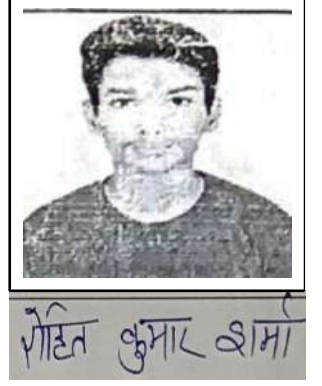 रोहित कुमार शर्मा